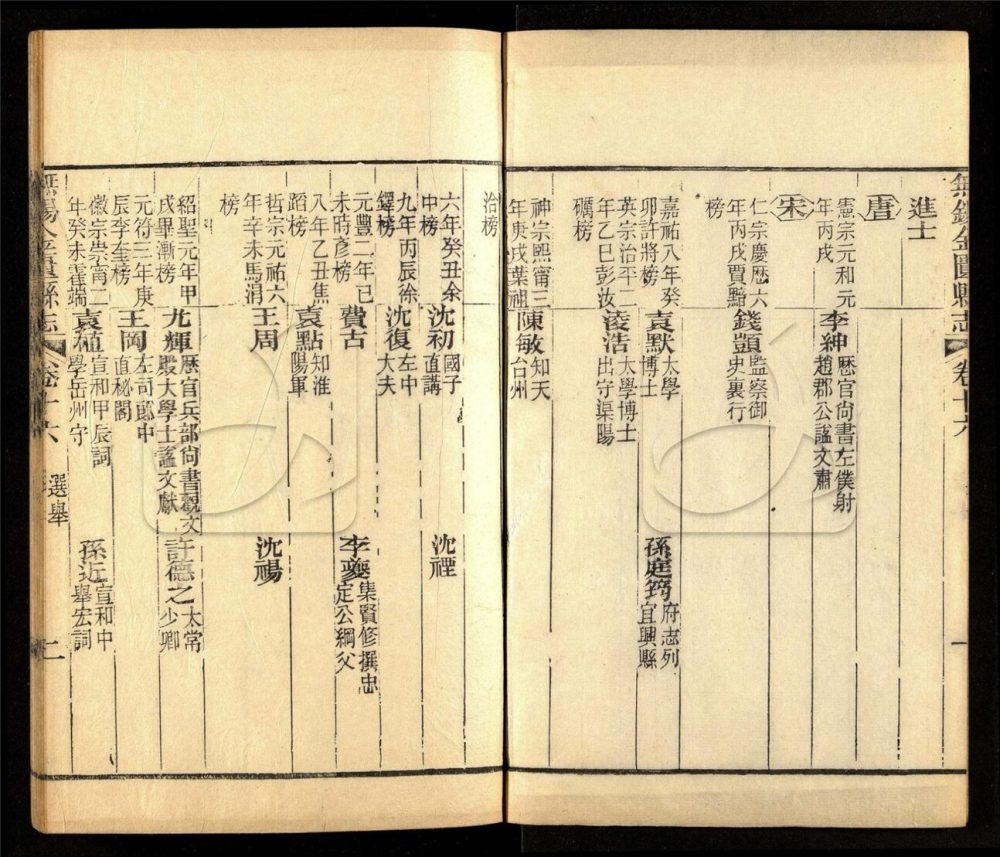 無錫金匱縣志 卷十六 一
進士
唐
憲宗元和元年丙戌 李紳 歷官尚書左僕射趙郡公謚文肅
宋
仁宗慶歷六年丙戌賈黯榜 錢顗 監察御史裏行
嘉祐八年癸卯許將榜 袁默 太學博士 孫庭筠 府志列宜興縣
英宗治平二年乙巳彭汝礪榜 淩浩 太學博士出守渠陽
神宗熙甯三年庚戌葉祖 陳敏 知天台州
洽榜
六年癸丑余中榜 沈初 國子直講 沈禋
九年丙辰徐鐸榜 沈復 左中大夫
元豐二年己未時彥榜 費古 李夔 集賢修撰忠定公綱父
八年乙丑焦蹈榜 袁點 知淮陽軍
哲宗元祐六年辛未馬涓榜 王周 沈禓
紹聖元年甲戌畢漸榜 尤輝 歷官兵部尚書觀文殿大學士謚文獻 許德之 太常少卿
元符三年庚辰李奎榜 王岡 左司郎中直秘閣
徽宗崇甯二年癸未霍端 袁植 宣和甲辰詞學岳州守 孫近 宣和中舉宏詞
無錫金匱縣志 卷十六 選舉 二